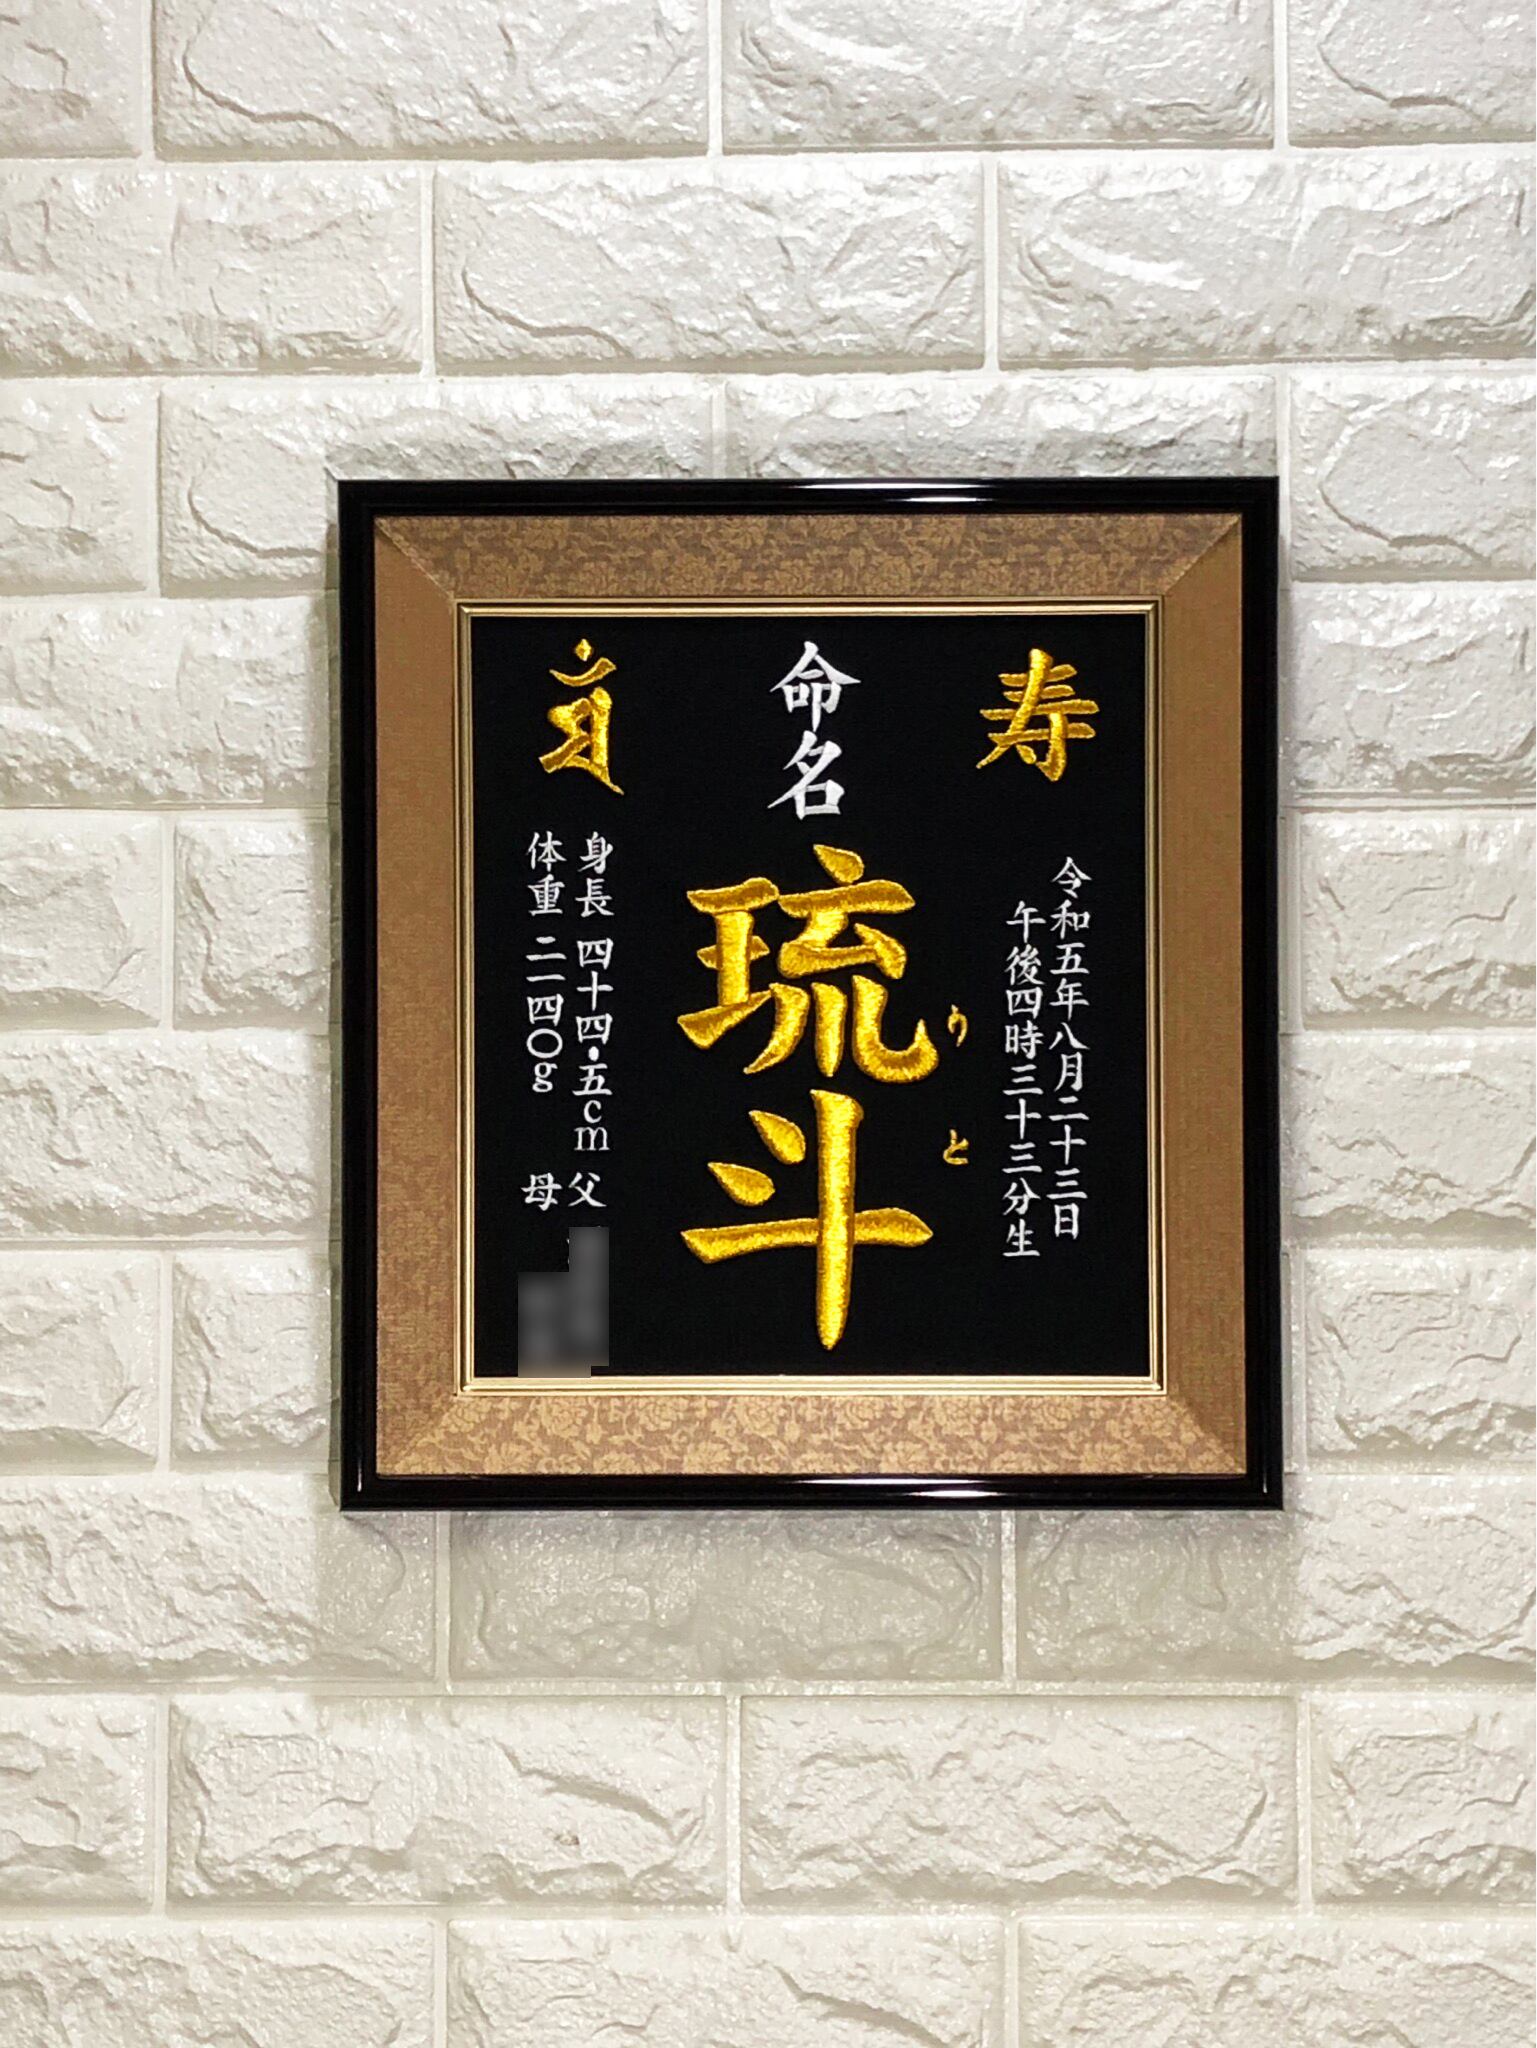 寿
令和五年八月二十三日
午後四時三十三分生
命名
琉斗
りと
身長 四十四・五cm
体重 二一四〇g
父
母